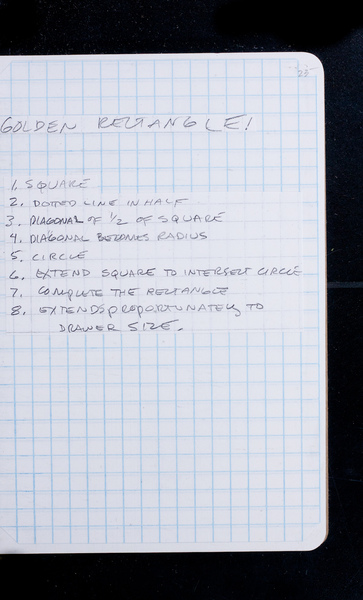 23
GOLDEN RECTANGLE!
1. SQUARE
2. DOTTED LINE IN HALF
3. DIAGONAL OF 1/2 OF SQUARE
4. DIAGONAL BECOMES RADIUS
5. CIRCLE
6. EXTEND SQUARE TO INTERSECT CIRCLE
7. COMPLETE THE RECTANGLE
8. EXTENDS PROPORTUNATELY TO
DRAWER SIZE.